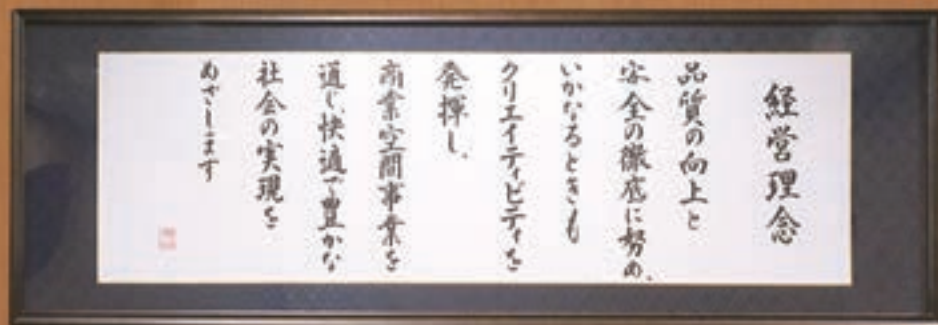 経営理念
品質の向上と
安全の徹底に努め、
いかなるときも
クリエイティビティを
発揮し、
商業空間事業を
通じ、快適で豊かな
社会の実現を
めざします